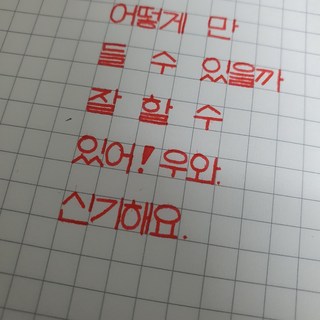 어떻게 만
들 수 있을까
잘 할 수
있어! 우와.
신기해요.